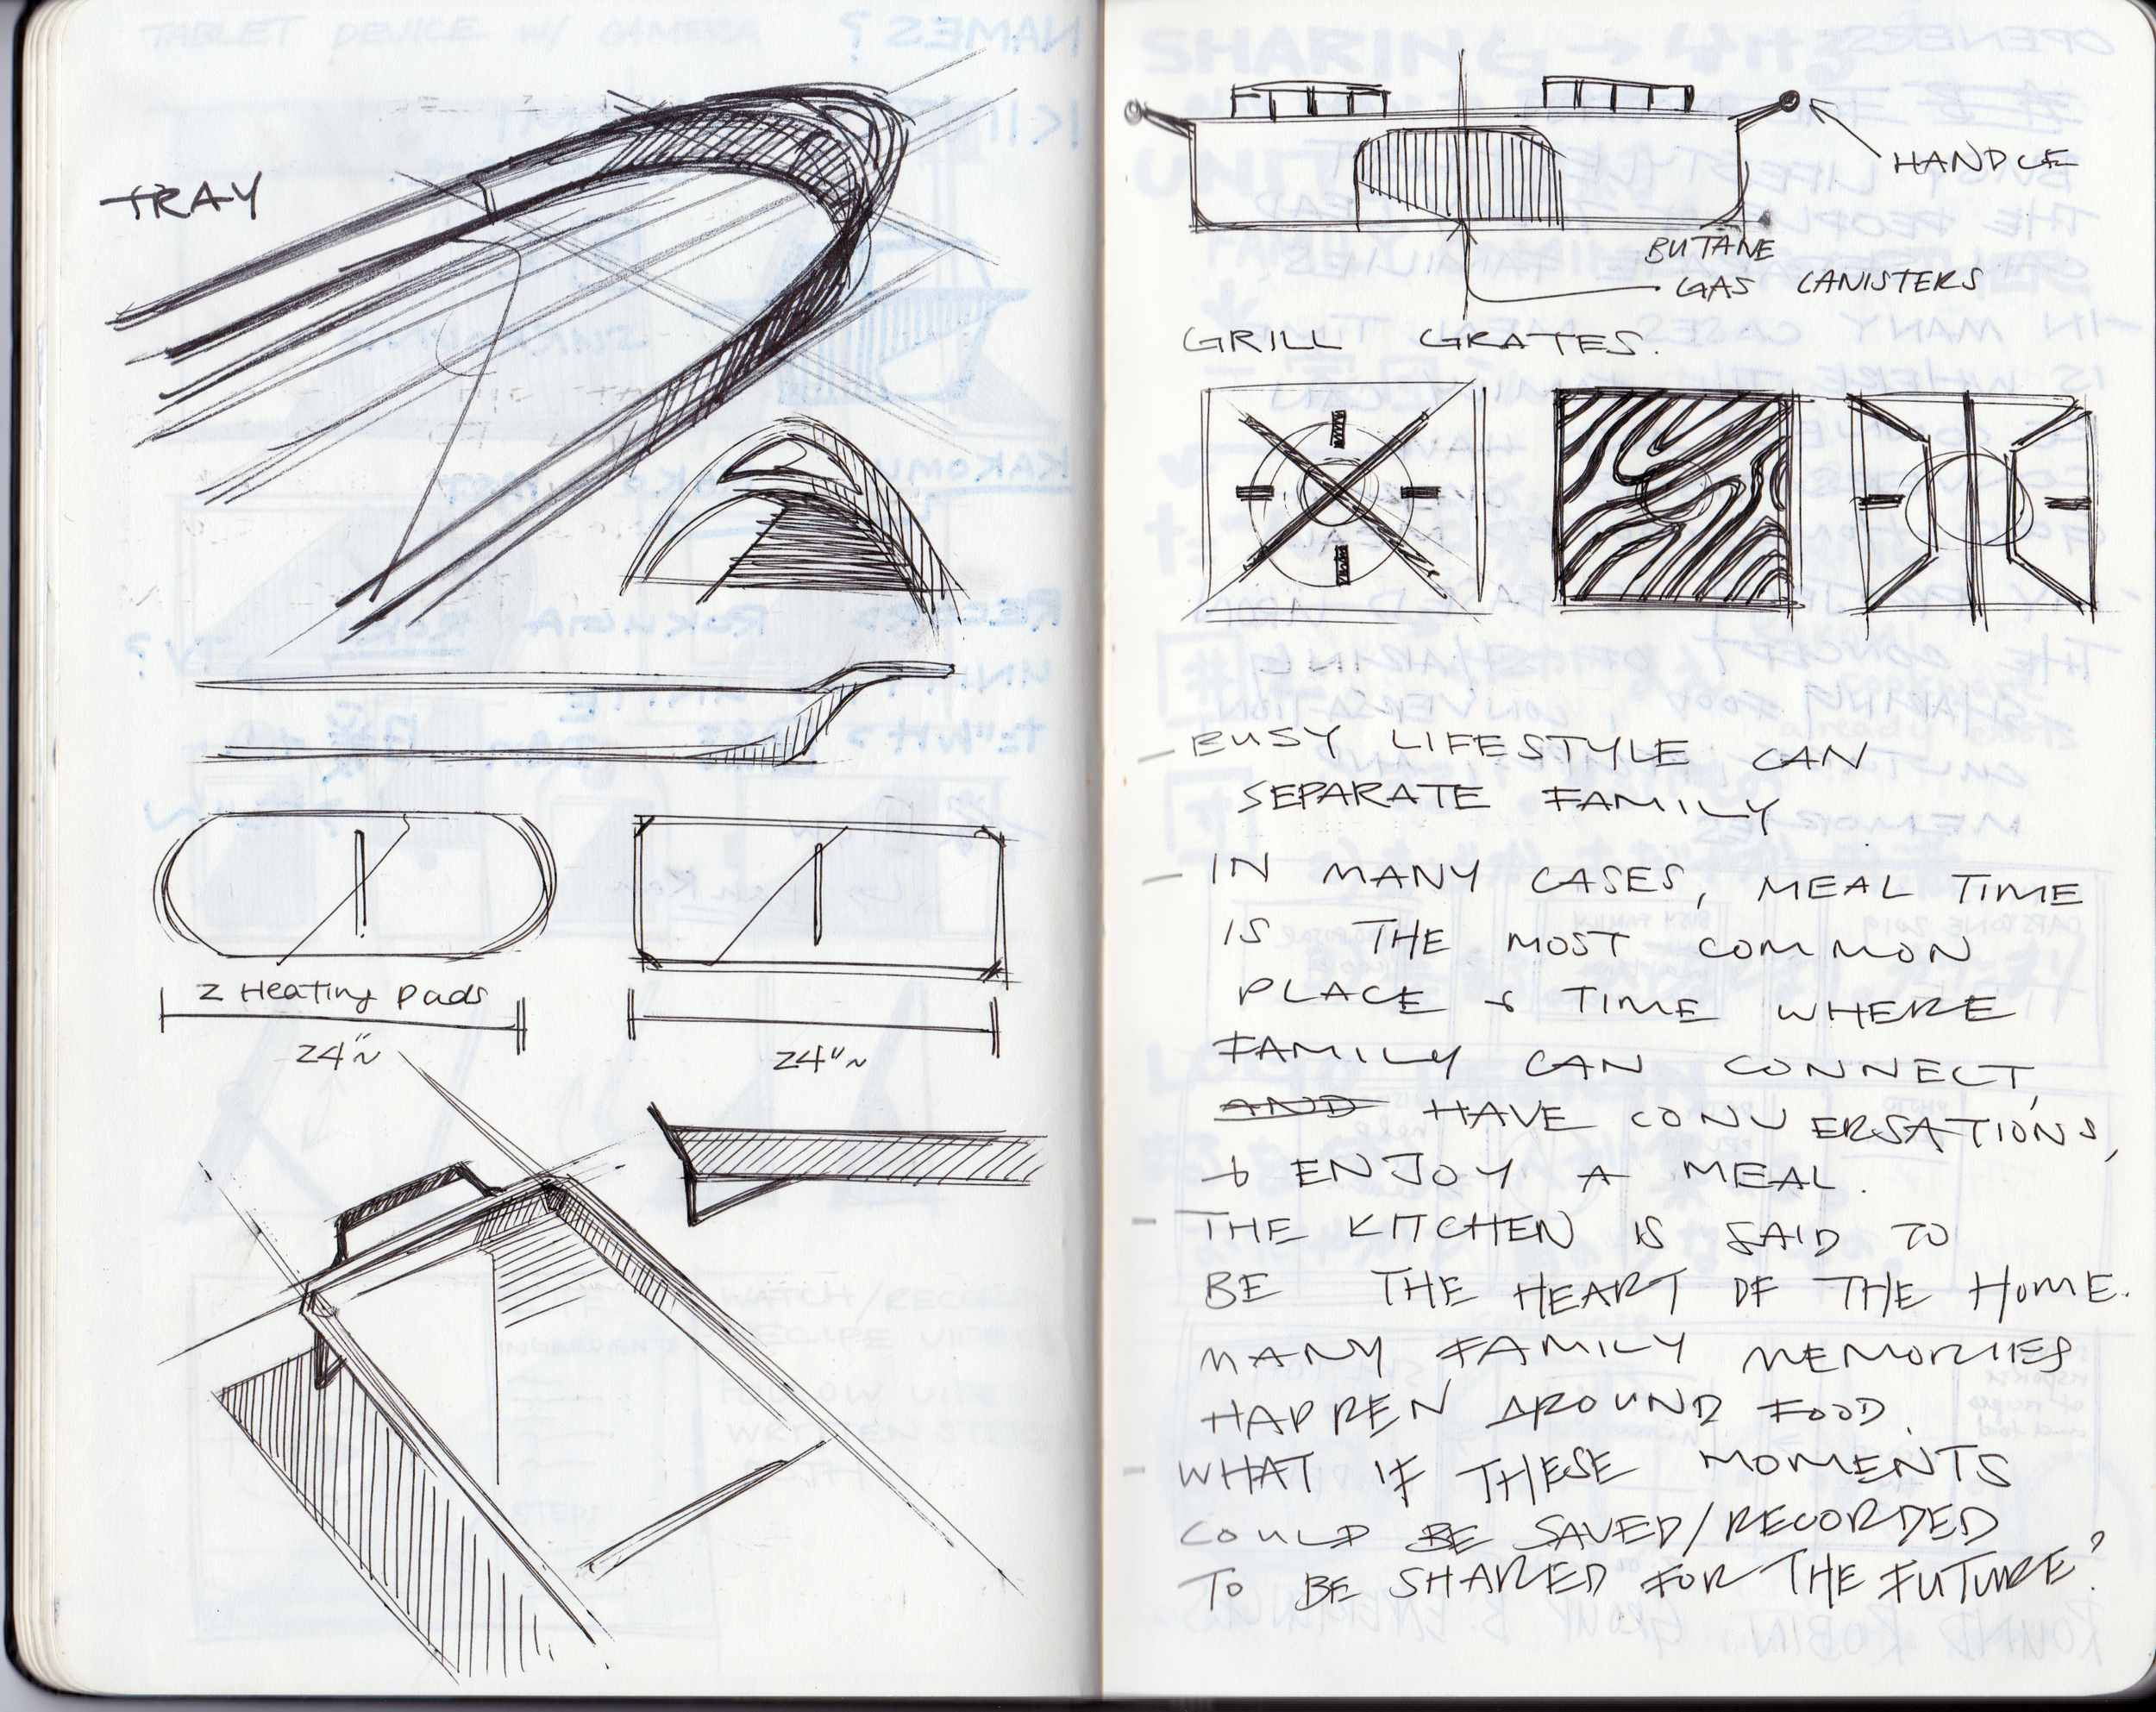 TRAY
2 Heating pads
24"~
24"~
HANDLE
BUTANE
GAS CANISTERS
GRILL GRATES.
- BUSY LIFESTYLE CAN
SEPARATE FAMILY
- IN MANY CASES, MEAL TIME
IS THE MOST COMMON
PLACE & TIME WHERE
FAMILY CAN CONNECT,
AND HAVE CONVERSATIONS,
& ENJOY A MEAL.
- THE KITCHEN IS SAID TO
BE THE HEART OF THE HOME.
MANY FAMILY MEMORIES
HAPPEN AROUND FOOD.
- WHAT IF THESE MOMENTS
COULD BE SAVED/RECORDED
TO BE SHARED FOR THE FUTURE?